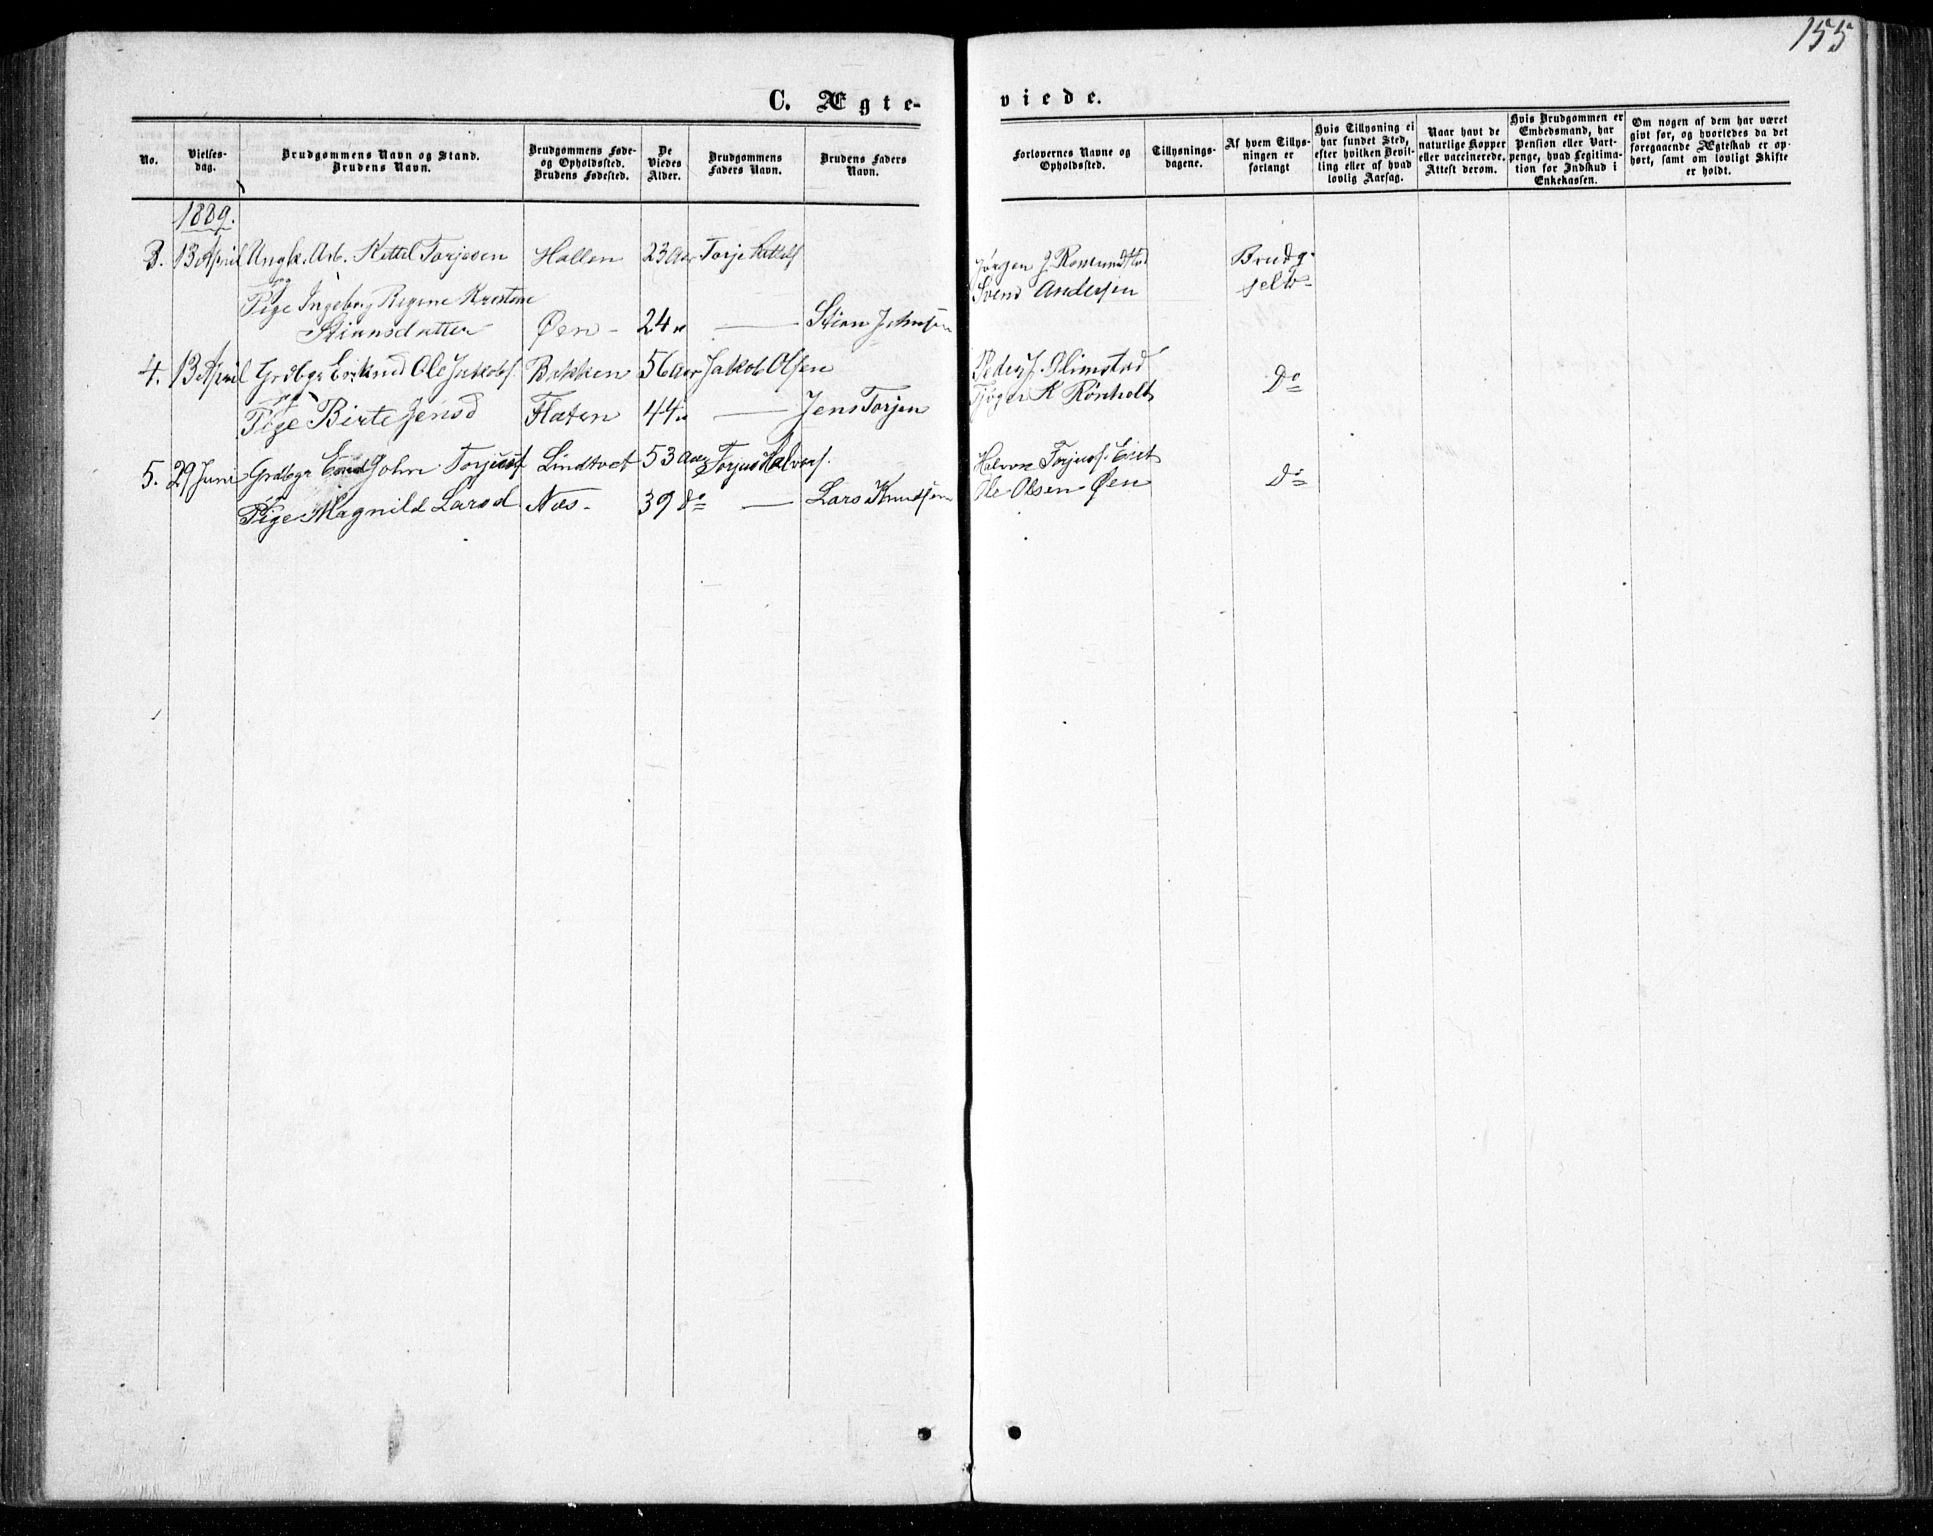 155
C. Ægte-
viede.
No.
Vielses-
dag.
Brudgommens Navn og Stand.
Brudens Navn.
Brudgommens Føde-
og Opholdssted.
Brudens Fødested.
De
Viedes
Alder.
Brudgommens
Faders Navn.
Brudens Faders
Navn.
Forlovernes Navne og
Opholdssted.
Tillysnings-
dagene.
Af hvem Tillys-
ningen er
forlangt
Hvis Tillysning ei
har fundet Sted,
efter hvilken Bevil-
ling eller af hvad
lovlig Aarsag.
Naar havt de
naturlige Kopper
eller vaccinerede.
Attest derom.
Hvis Brudgommen er
Embedsmand, har
Pension eller Vart-
penge, hvad Legitima-
tion for Indskud i
Enkekassen.
Om nogen af dem har været
givt før, og hvorledes da det
foregaaende Ægteskab er op-
hørt, samt om lovligt Skifte
er holdt.
1889.
3. 13 April Ungk. Arb. Kettel Torjesen Hallen 23 Aar Torje Kettels
Jørgen J. Rosmundstad Brudg.
og
Pige Ingeborg Regine Kristine
Svend Andersen selv
Stiansdatter Øen - 24 " — Stian Johnsen
4. 13 April Grdbgr Enkmd Ole Jakobs. Bakken 56 Aar Jakob Olsen
Peder J. Glimstad Do
og
Pige Birte Jensd Flaten 44 " — Jens Torjen
K Rønholt
5. 29 Juni Grdbgr John Torjuss Lindtvet 53 Aar Torjus Halvors.
Halvor Torjuss.
Pige Magnild Larsd Næs - 39 do — Lars Knudsen
Ole Olsen Øen Do